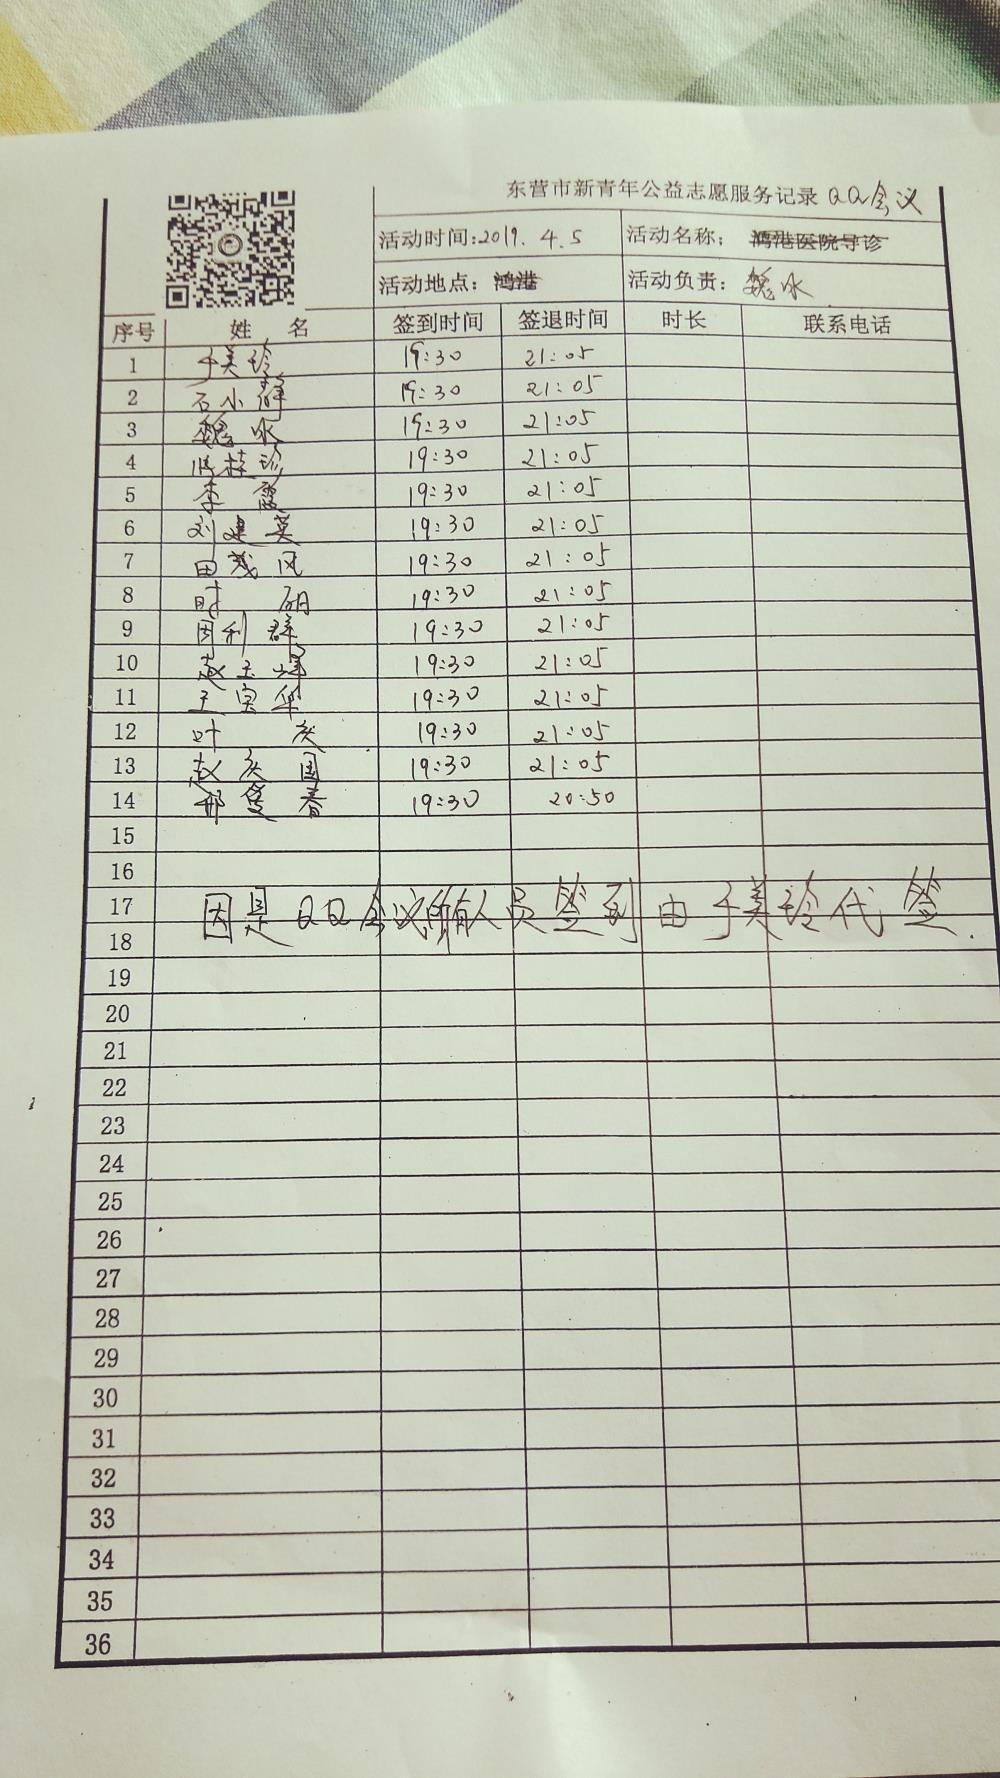 东营市新青年公益志愿服务记录 QQ会议
活动时间:2019.4.5 活动名称: 鸿港医院导诊
活动地点: 鸿港 活动负责: 魏冰
序号 姓 名 签到时间 签退时间 时长 联系电话
1 于美玲 19:30 21:05
2 石小静 19:30 21:05
3 魏冰 19:30 21:05
4 桂珍 19:30 21:05
5 李霞 19:30 21:05
6 刘建英 19:30 21:05
7 田茂风 19:30 21:05
8 时 19:30 21:05
9 利群 19:30 21:05
10 赵玉 19:30 21:05
11 王宝华 19:30 21:05
12 叶庆 19:30 21:05
13 赵庆国 19:30 21:05
14 邢爱春 19:30 20:50
15
16
17
因是QQ会议所有人员签到由于美玲代签.
18
19
20
21
22
23
24
25
26
27
28
29
30
31
32
33
34
35
36